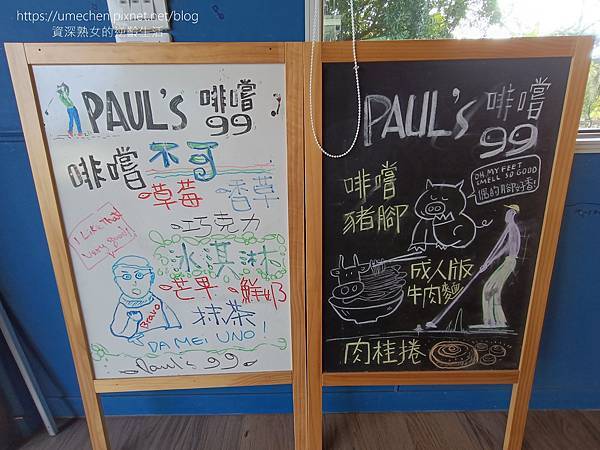 https://umechen.pixnet.net/blog
資深熟女的逆齡生活
PAUL's 啡嚐
99
啡嚐 不可
草莓 香草
巧克力
冰淇淋
芒果 鮮奶
抹茶
I Like That!
Very good!
Bravo
DA MEI UNO!
Paul's 99
PAUL's 啡嚐
99
啡嚐
豬腳
OH, MY FEET
SMELL SO GOOD
偶的腳好香!
成人版
牛肉麵
肉桂捲